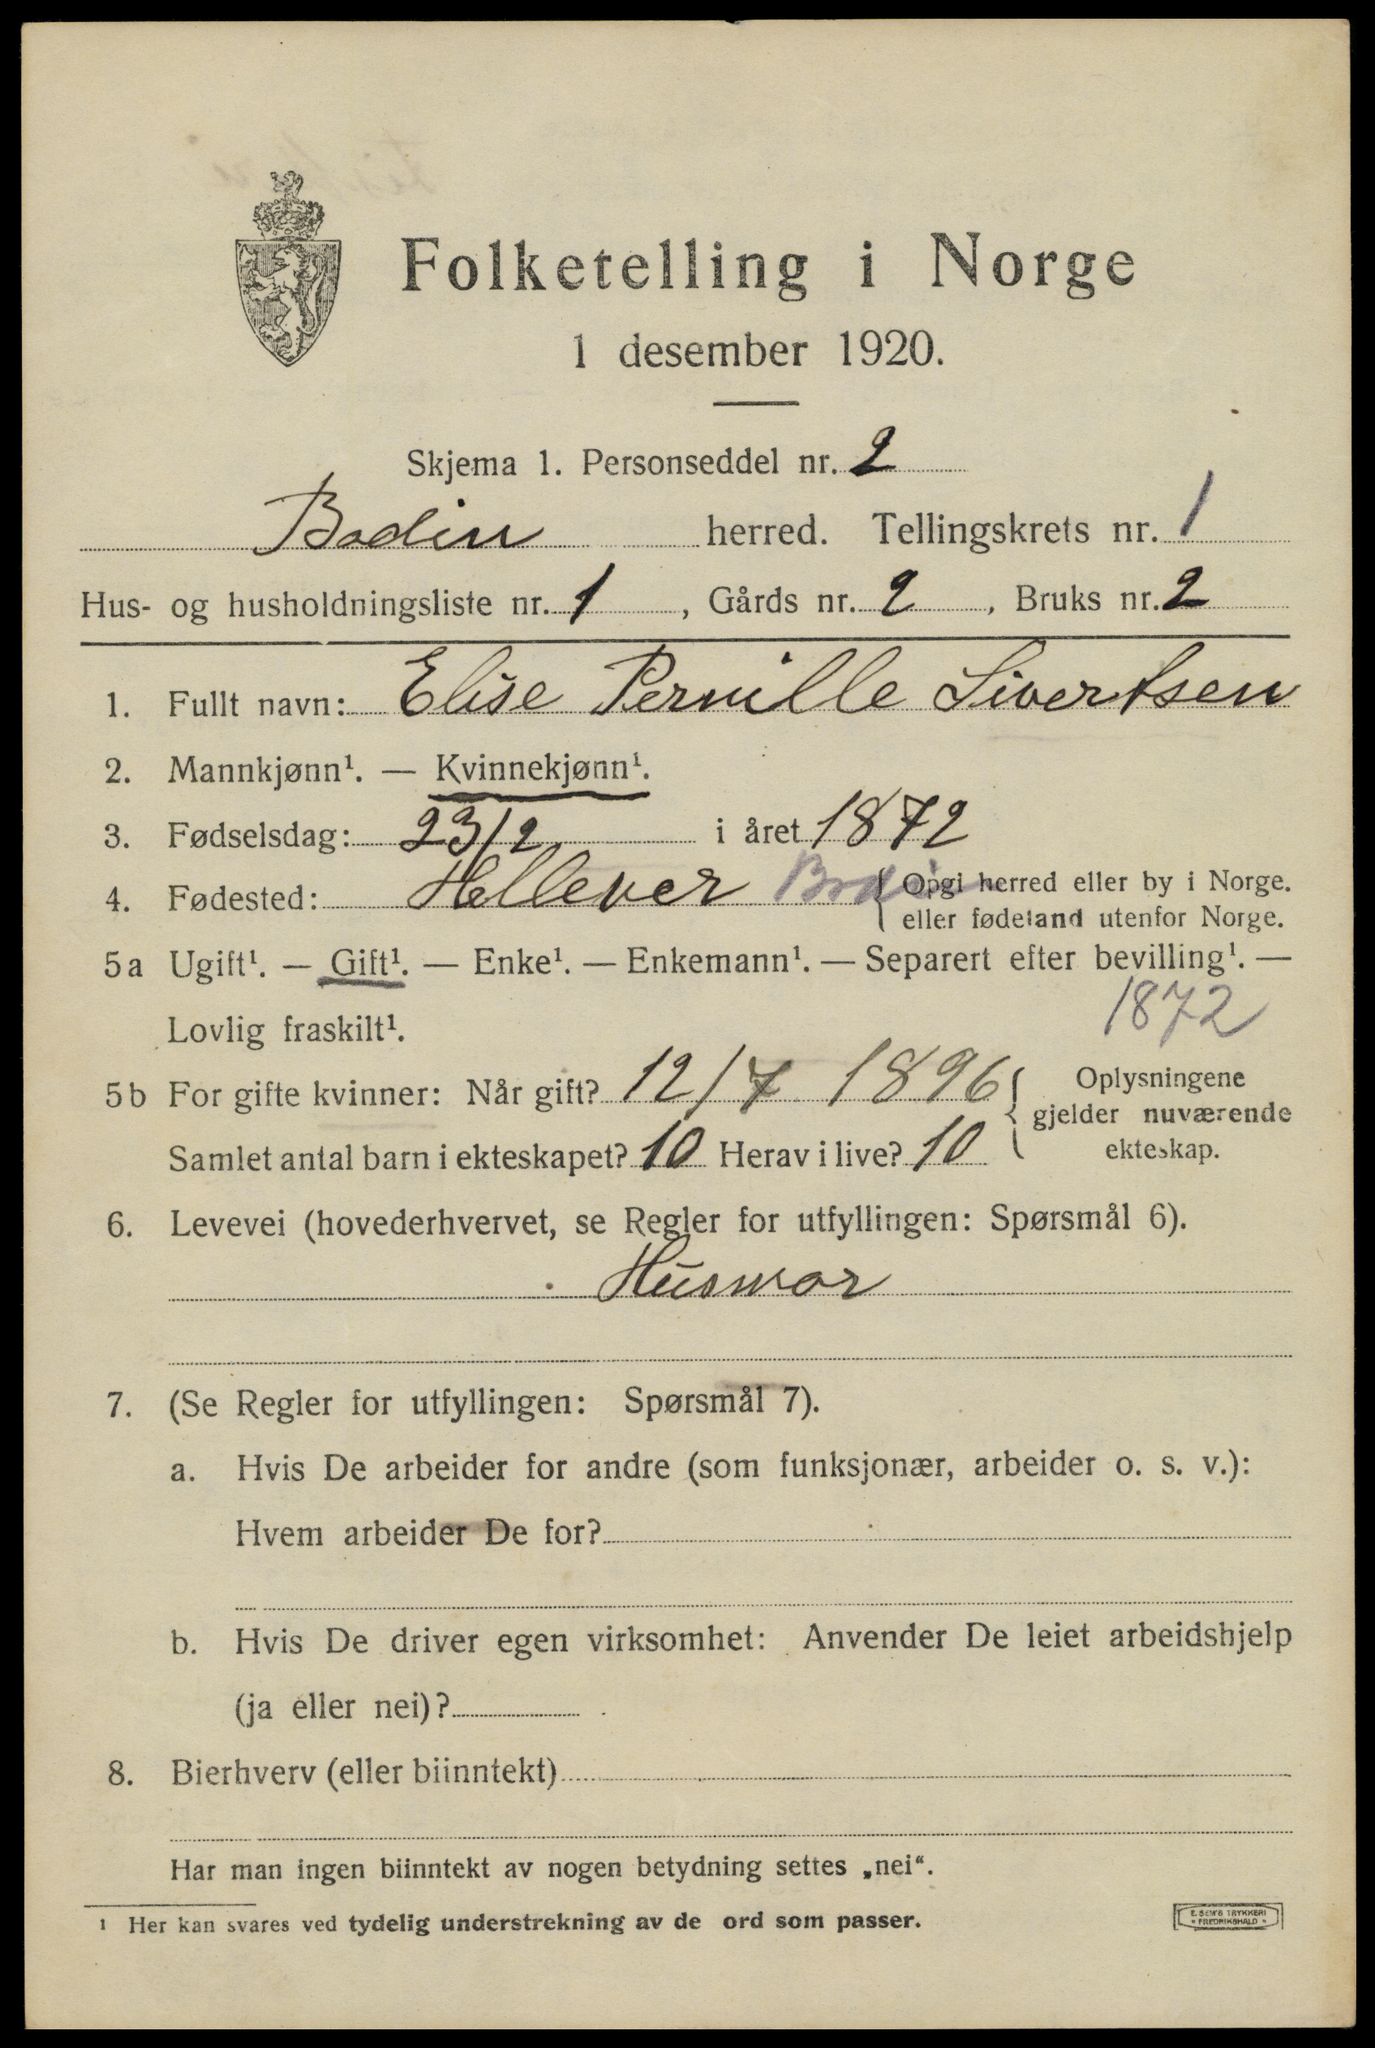 Folketelling i Norge
1 desember 1920.
Skjema 1. Personseddel nr. 2
Bodin herred. Tellingskrets nr. 1
Hus- og husholdningsliste nr. 1, Gårds nr. 2, Bruks nr. 2
1. Fullt navn: Elise Pernille Sivertsen
2. Mannkjønn¹. — Kvinnekjønn¹.
3. Fødselsdag: 23/2 i året 1872
4. Fødested: Hellever Bodin { Opgi herred eller by i Norge.
eller fødeland utenfor Norge.
5a Ugift¹. — Gift¹. — Enke¹. — Enkemann¹. — Separert efter bevilling¹. —
Lovlig fraskilt¹. 1872
5b For gifte kvinner: Når gift? 12/7 1896 { Oplysningene
gjelder nuværende
Samlet antal barn i ekteskapet? 10 Herav i live? 10 ekteskap.
6. Levevei (hovederhvervet, se Regler for utfyllingen: Spørsmål 6).
Husmor
7. (Se Regler for utfyllingen: Spørsmål 7).
a. Hvis De arbeider for andre (som funksjonær, arbeider o. s. v.):
Hvem arbeider De for?
b. Hvis De driver egen virksomhet: Anvender De leiet arbeidshjelp
(ja eller nei)?
8. Bierhverv (eller biinntekt)
Har man ingen biinntekt av nogen betydning settes „nei“.
¹ Her kan svares ved tydelig understrekning av de ord som passer.
E. SEM'S TRYKKERI
FREDRIKSHALD